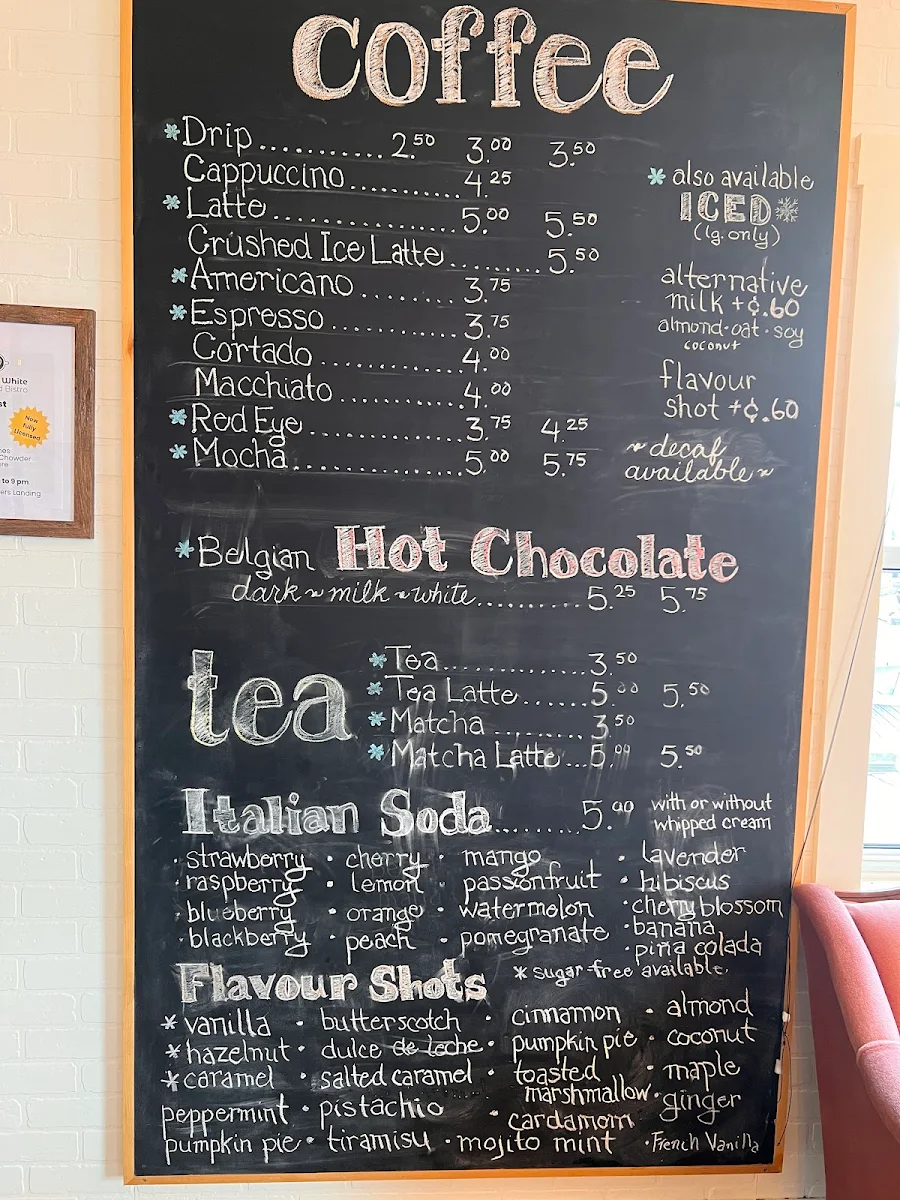 coffee
*Drip............2.50 3.00 3.50
Cappuccino..........4.25
*Latte..................5.00 5.50
Crushed Ice Latte........5.50
*Americano..........3.75
*Espresso............3.75
Cortado.............4.00
Macchiato...........4.00
*Red Eye..............3.75 4.25
*Mocha................5.00 5.75
* also available
ICED
(lg. only)
alternative
milk +¢.60
almond·oat·soy
coconut
flavour
shot +¢.60
~decaf
available~
*Belgian Hot Chocolate
dark~milk~white..........5.25 5.75
tea
*Tea................3.50
*Tea Latte.......5.00 5.50
*Matcha..........3.50
*Matcha Latte...5.00 5.50
Italian Soda..........5.00 with or without
whipped cream
·strawberry ·cherry ·mango ·lavender
·raspberry ·lemon ·passionfruit ·hibiscus
·blueberry ·orange ·watermelon ·cherry blossom
·blackberry ·peach ·pomegranate ·banana
piña colada
Flavour Shots *sugar-free available.
*vanilla ·butterscotch ·cinnamon ·almond
*hazelnut ·dulce de leche ·pumpkin pie ·coconut
*caramel ·salted caramel ·toasted marshmallow ·maple
peppermint ·pistachio ·cardamom ·ginger
pumpkin pie ·tiramisu ·mojito mint ·French Vanilla
White
Bistro
Now
fully
Licensed
Chowder
to 9 pm
Landing